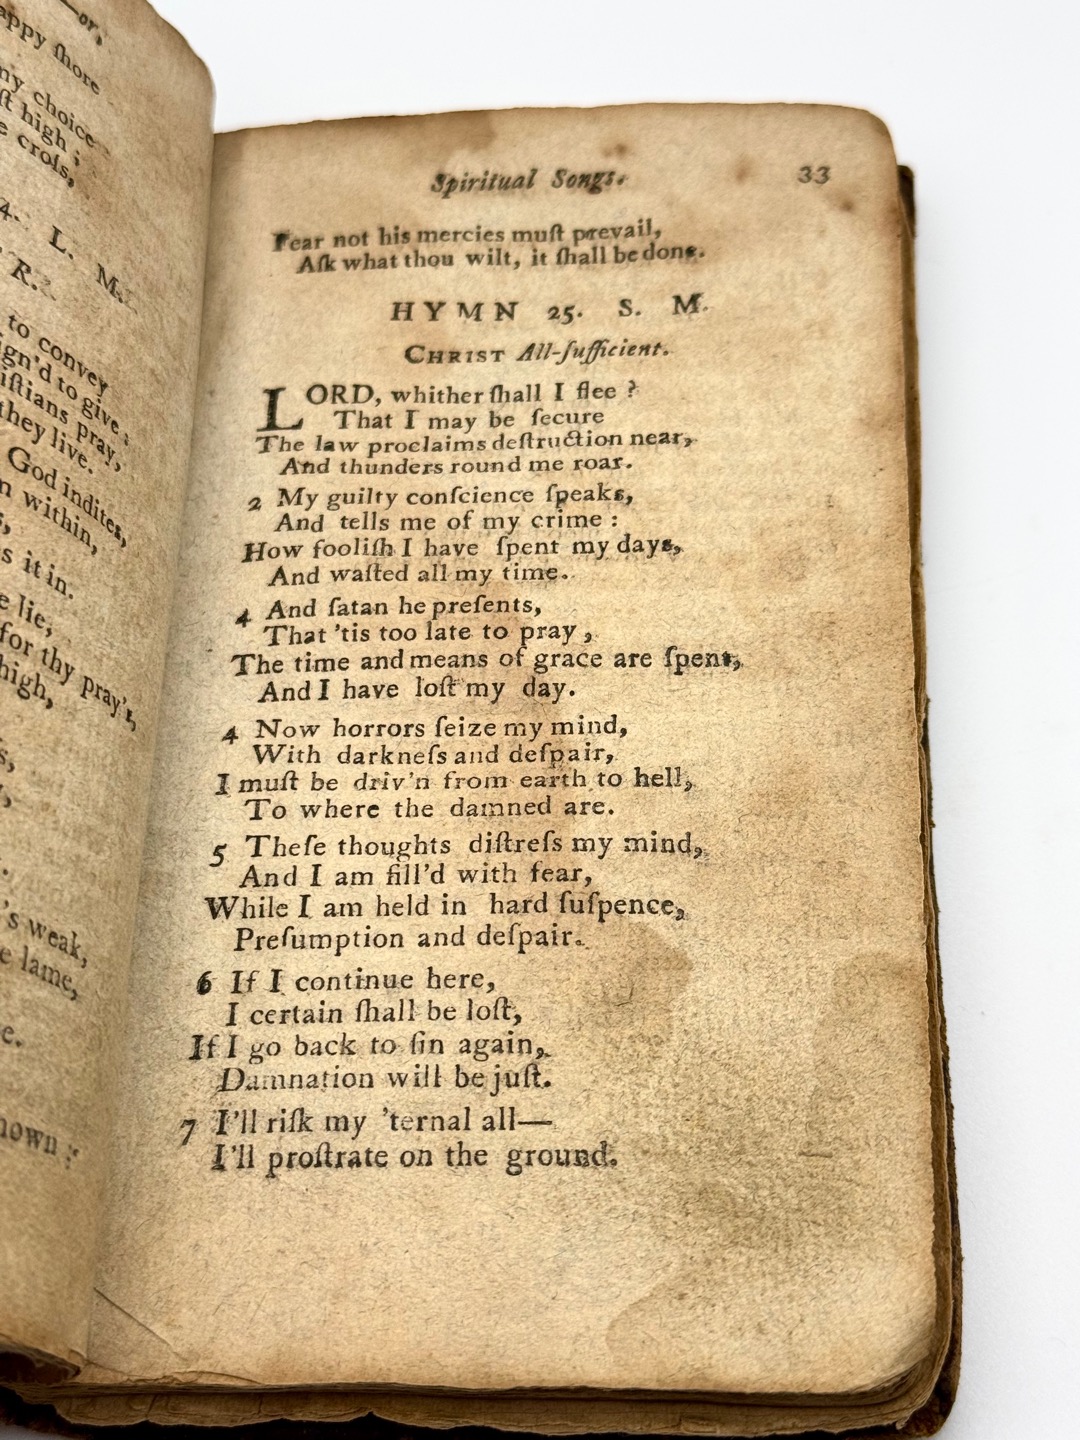 —or,
appy ſhore
ny choice
ſt high ;
e croſs,
4. L. M.
R.
to convey
ign'd to give ;
iſtians pray,
they live.
God indites,
n within,
s,
s it in.
e lie,
for thy pray'r,
high,
s,
's weak,
e lame,
e.
nown :
Spiritual Songs. 33
Fear not his mercies muſt prevail,
Aſk what thou wilt, it ſhall be done.
HYMN 25. S. M.
CHRIST All-ſufficient.
LORD, whither ſhall I flee ?
That I may be ſecure
The law proclaims deſtruction near,
And thunders round me roar.
2 My guilty conſcience ſpeaks,
And tells me of my crime :
How fooliſh I have ſpent my days,
And waſted all my time.
4 And ſatan he preſents,
That 'tis too late to pray ,
The time and means of grace are ſpent,
And I have loſt my day.
4 Now horrors ſeize my mind,
With darkneſs and deſpair,
I muſt be driv'n from earth to hell,
To where the damned are.
5 Theſe thoughts diſtreſs my mind,
And I am fill'd with fear,
While I am held in hard ſuſpence,
Preſumption and deſpair.
6 If I continue here,
I certain ſhall be loſt,
If I go back to ſin again,
Damnation will be juſt.
7 I'll riſk my 'ternal all—
I'll proſtrate on the ground.